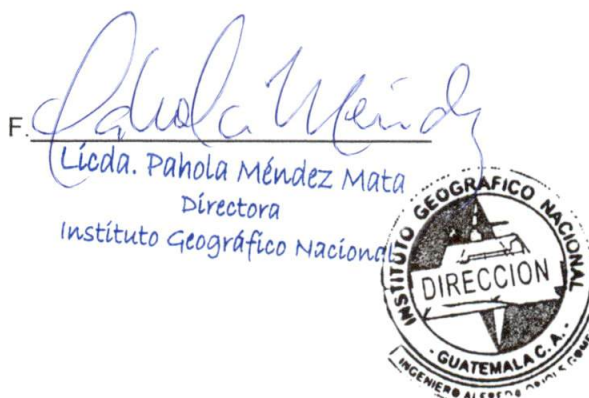 F. Pahola Méndez
Licda. Pahola Méndez Mata
Directora
Instituto Geográfico Nacional
INSTITUTO GEOGRAFICO NACIONAL
DIRECCION
- GUATEMALA C. A. -
INGENIERO ALFREDO